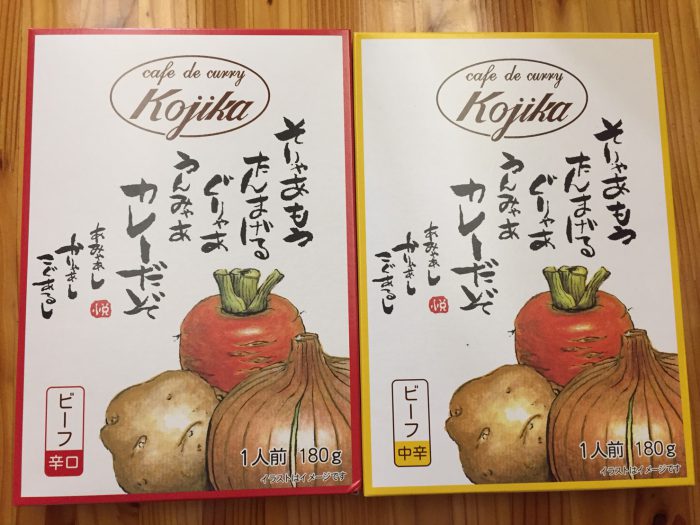 cafe de curry
Kojika
そりゃあもう
たんまげる
ぐりゃあ
うんみゃあ
カレーだぞ
あみゃあし
かりゃあし
こくあるし
悦
ビーフ
辛口
1人前 180g
イラストはイメージです
cafe de curry
Kojika
そりゃあもう
たんまげる
ぐりゃあ
うんみゃあ
カレーだぞ
あみゃあし
かりゃあし
こくあるし
悦
ビーフ
中辛
1人前 180g
イラストはイメージです